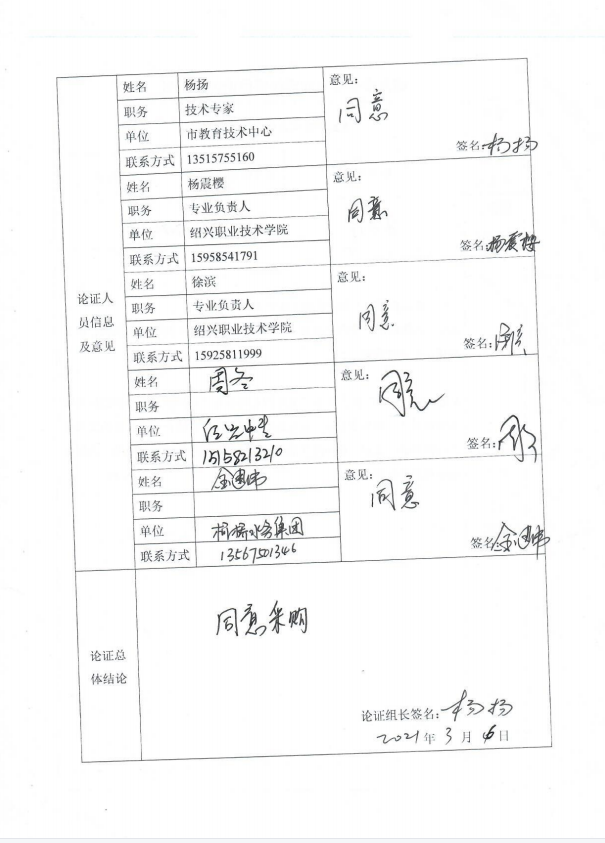 姓名 杨扬 意见：
职务 技术专家 同意
单位 市教育技术中心
联系方式 13515755160 签名：杨扬
姓名 杨震樱 意见：
职务 专业负责人 同意
单位 绍兴职业技术学院
联系方式 15958541791 签名：杨震樱
论证人员信息及意见
姓名 徐滨 意见：
职务 专业负责人 同意
单位 绍兴职业技术学院
联系方式 15925811999 签名：
姓名 周冬 意见：
职务 同意
单位
联系方式 15158213210 签名：
姓名 金建伟 意见：
职务 同意
单位 柯桥水务集团
联系方式 13567501346 签名：金建伟
论证总体结论
同意采购
论证组长签名：杨扬
2021年3月6日